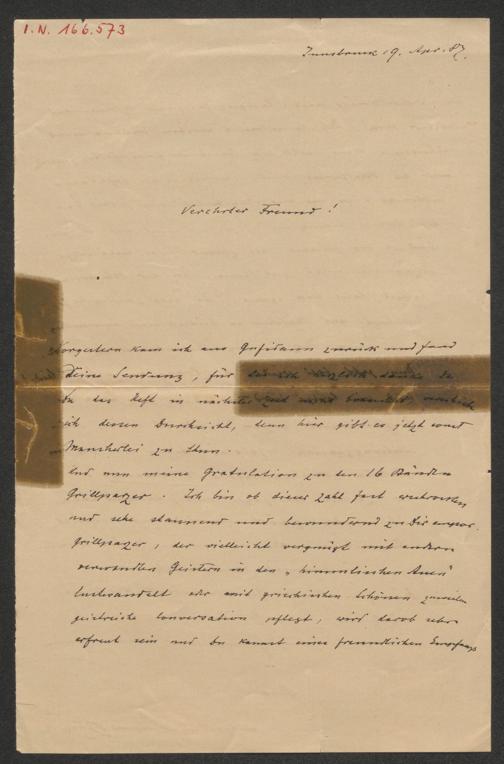 I.N. 166.573
Innsbruck 19. Apr. 87.
Verehrter Freund!
Vorgestern kam ich aus Gufidaun zurück und fand
Deine Sendung, für die ich herzlich danke. Da
Du das Heft in nächster Zeit
ich dessen Durchsicht, denn hier gibt es jetzt sonst
Mancherlei zu thun.
Und nun meine Gratulation zu den 16 Bänden
Grillparzer. Ich bin ob dieser Zahl fast
und sehe staunend und bewundernd zu Dir empor.
Grillparzer, der vielleicht vergnügt mit andern
verwandten Geistern in den „himmlischen Auen"
lustwandelt oder mit griechischen Schönen zuweilen
geistreiche Conversation pflegt, wird darob sehr
erfreut sein und Du kannst eines freundlichen Empfangs